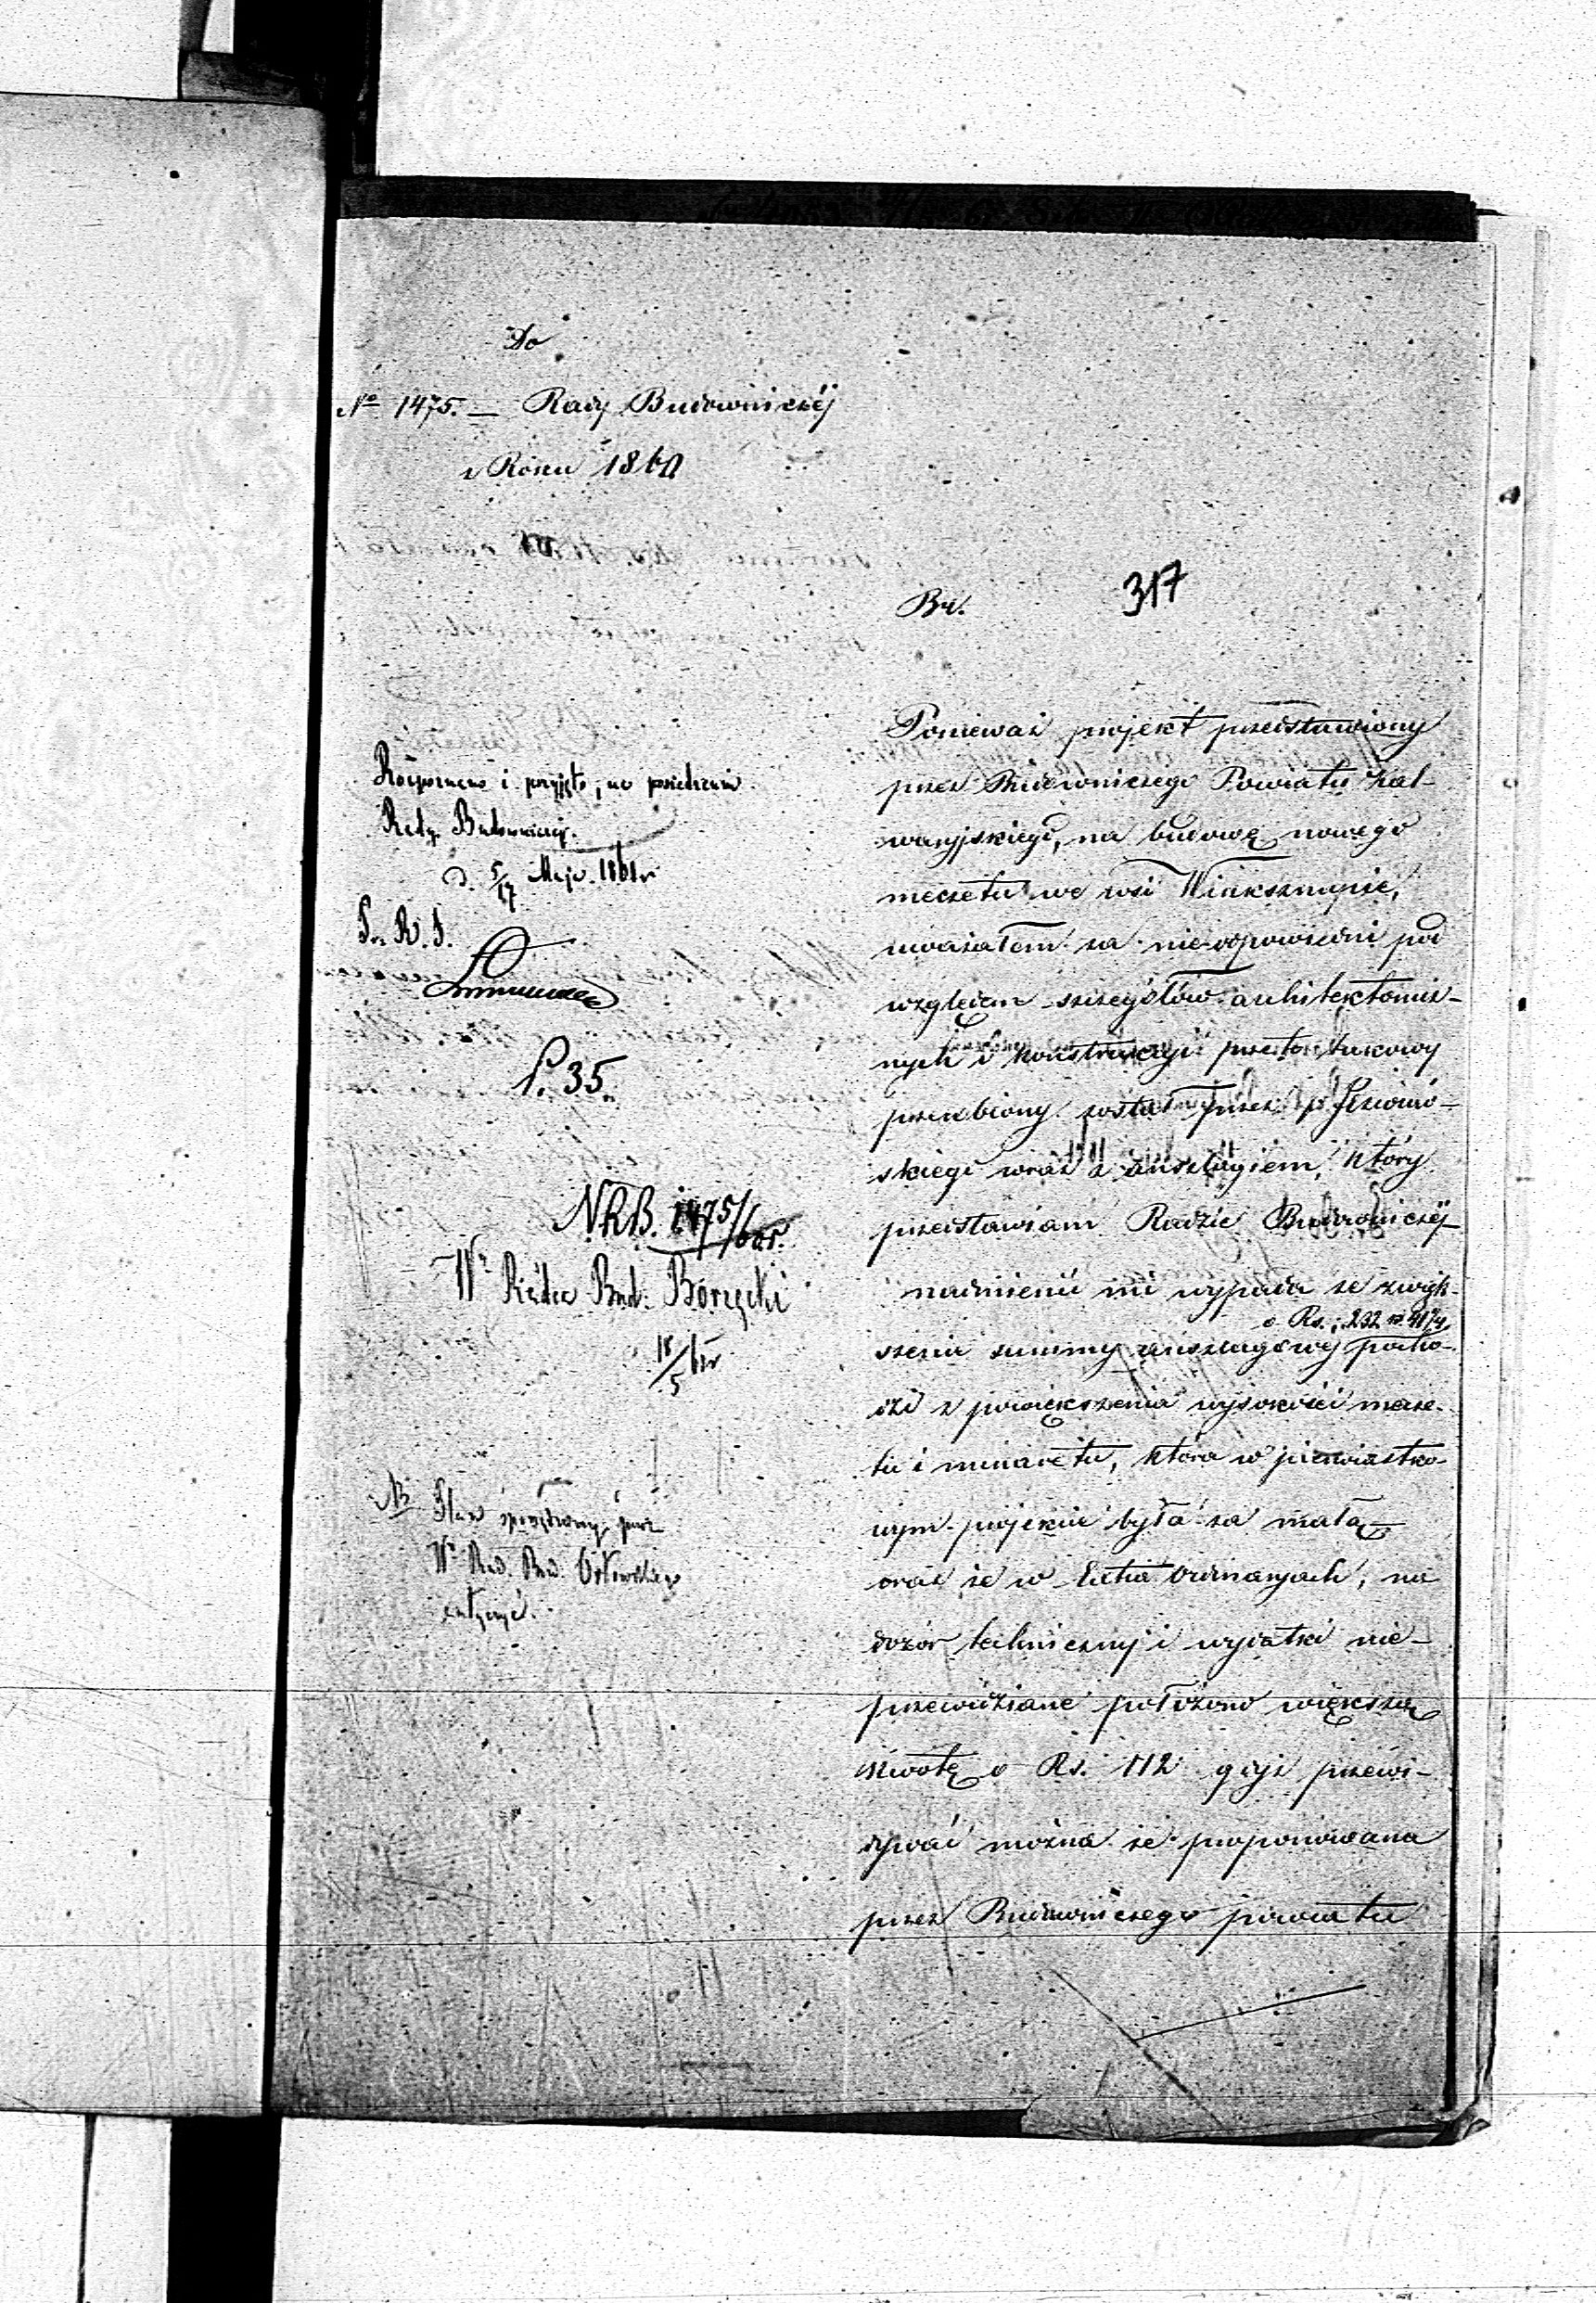 Do
No 1475. — Rady Budowniczéj
z Roku 1860
317
Br.
Rozpoznano i przyjęto, na posiedzeniu
Rady Budowniczéj.
d. 5/17 Maja 1861 r
P. R. S.
S. 35.
N.R.B. 1475/60r.
Wr Radca Bud. Borzęcki
18/5 61r
NB Plan sporządzony przez
Wo Rad. Bud. Orłowskiego
załączyć.
Ponieważ projekt przedstawiony
przez Budowniczego Powiatu Kal-
waryjskiego, na budowę nowego
meczetu we wsi Winksznupie,
uważałem za nieodpowiedni pod
względem szczegółów architektonicz-
nych i konstrukcyi przeto takowy
przerobiony został przez p.
skiego wraz z anszlagiem, który
przedstawiam Radzie Budowniczéj
nadmienić mi wypada że zwięk-
o Rs. 232 k 41 3/4
szenie summy anszlagowéj pocho-
dzi z powiększenia wysokości mecze-
tu i minaretu, która w pierwiastko-
wym projekcie była za małą
oraz że w Extra ordinaryach, na
dozór techniczny i wydatki nie-
przewidziane położono większą
kwotę o Rs. 112 gdyż przewi-
dywać można że proponowana
przez Budowniczego powiatu